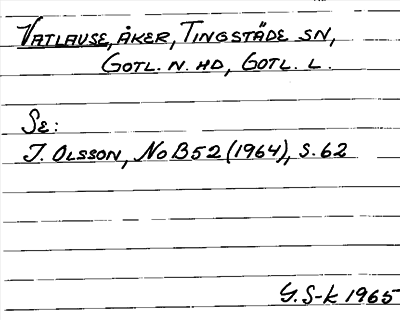 VATLAUSE, ÅKER, TINGSTÄDE SN,
GOTL. N. HD, GOTL. L.
SE:
I. OLSSON, NoB 52 (1964), S. 62
G. S-k 1965